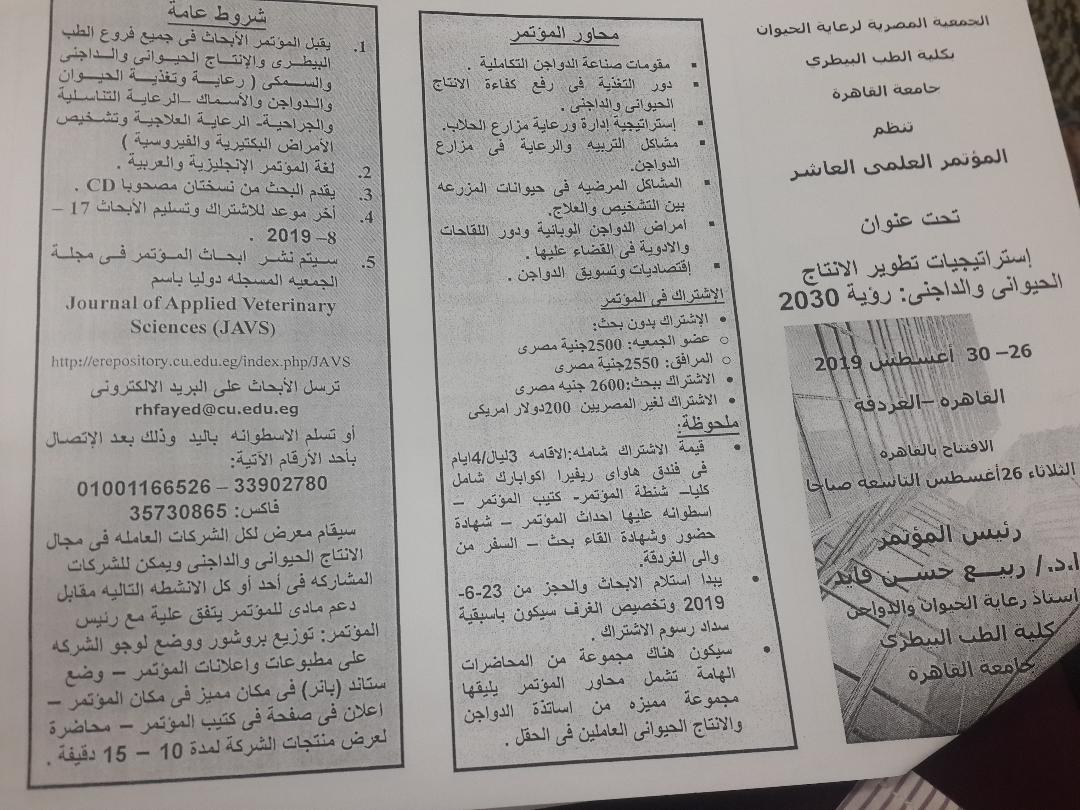 الجمعية المصرية لرعاية الحيوان
بكلية الطب البيطرى
جامعة القاهرة
تنظم
المؤتمر العلمى العاشر
تحت عنوان
إستراتيجيات تطوير الانتاج
الحيوانى والداجنى: رؤية 2030
26– 30 أغسطس 2019
القاهره –الغردقه
الافتتاح بالقاهره
الثلاثاء 26أغسطس التاسعة صباحا
رئيس المؤتمر
ا.د./ ربيع حسن فايد
استاذ رعاية الحيوان والدواجن
كلية الطب البيطرى
جامعة القاهرة
محاور المؤتمر
▪ مقومات صناعة الدواجن التكاملية .
▪ دور التغذية فى رفع كفاءة الانتاج
الحيوانى والداجنى .
▪ إستراتيجية إدارة ورعاية مزارع الحلاب.
▪ مشاكل التربيه والرعاية فى مزارع
الدواجن.
▪ المشاكل المرضيه فى حيوانات المزرعه
بين التشخيص والعلاج.
▪ أمراض الدواجن الوبائية ودور اللقاحات
والادوية فى القضاء عليها .
▪ إقتصاديات وتسويق الدواجن .
الإشتراك فى المؤتمر
• الإشتراك بدون بحث:
○ عضو الجمعيه: 2500جنية مصرى
○ المرافق: 2550جنية مصرى
• الاشتراك ببحث:2600 جنيه مصرى
• الاشتراك لغير المصريين 200دولار امريكى
ملحوظة:
• قيمة الاشتراك شامله:الاقامه 3ليال/4ايام
فى فندق هاواى ريفيرا اكوابارك شامل
كليا– شنطة المؤتمر- كتيب المؤتمر –
اسطوانه عليها احداث المؤتمر – شهادة
حضور وشهادة القاء بحث – السفر من
والى الغردقة.
• يبدا استلام الابحاث والحجز من 23-6-
2019 وتخصيص الغرف سيكون باسبقية
سداد رسوم الاشتراك .
• سيكون هناك مجموعة من المحاضرات
الهامة تشمل محاور المؤتمر يليقها
مجموعة مميزه من اساتذة الدواجن
والانتاج الحيوانى العاملين فى الحقل .
شروط عامة
1. يقبل المؤتمر الأبحاث فى جميع فروع الطب
البيطرى والإنتاج الحيوانى والداجنى
والسمكى ( رعاية وتغذية الحيوان
والدواجن والأسماك –الرعاية التناسلية
والجراحية- الرعاية العلاجية وتشخيص
الأمراض البكتيرية والفيروسية )
2. لغة المؤتمر الإنجليزية والعربية .
3. يقدم البحث من نسختان مصحوبا CD .
4. أخر موعد للاشتراك وتسليم الأبحاث 17 –
8– 2019 .
5. سيتم نشر ابحاث المؤتمر فى مجلة
الجمعيه المسجله دوليا باسم
Journal of Applied Veterinary
Sciences (JAVS)
http://erepository.cu.edu.eg/index.php/JAVS
ترسل الأبحاث على البريد الالكترونى
rhfayed@cu.edu.eg
أو تسلم الاسطوانه باليد وذلك بعد الإتصال
بأحد الأرقام الآتية:
01001166526 – 33902780
فاكس: 35730865
سيقام معرض لكل الشركات العامله فى مجال
الانتاج الحيوانى والداجنى ويمكن للشركات
المشاركه فى أحد أو كل الانشطه التاليه مقابل
دعم مادى للمؤتمر يتفق علية مع رئيس
المؤتمر: توزيع بروشور ووضع لوجو الشركه
على مطبوعات واعلانات المؤتمر – وضع
ستاند (بانر) فى مكان مميز فى مكان المؤتمر –
اعلان فى صفحة فى كتيب المؤتمر – محاضرة
لعرض منتجات الشركة لمدة 10 – 15 دقيقة .